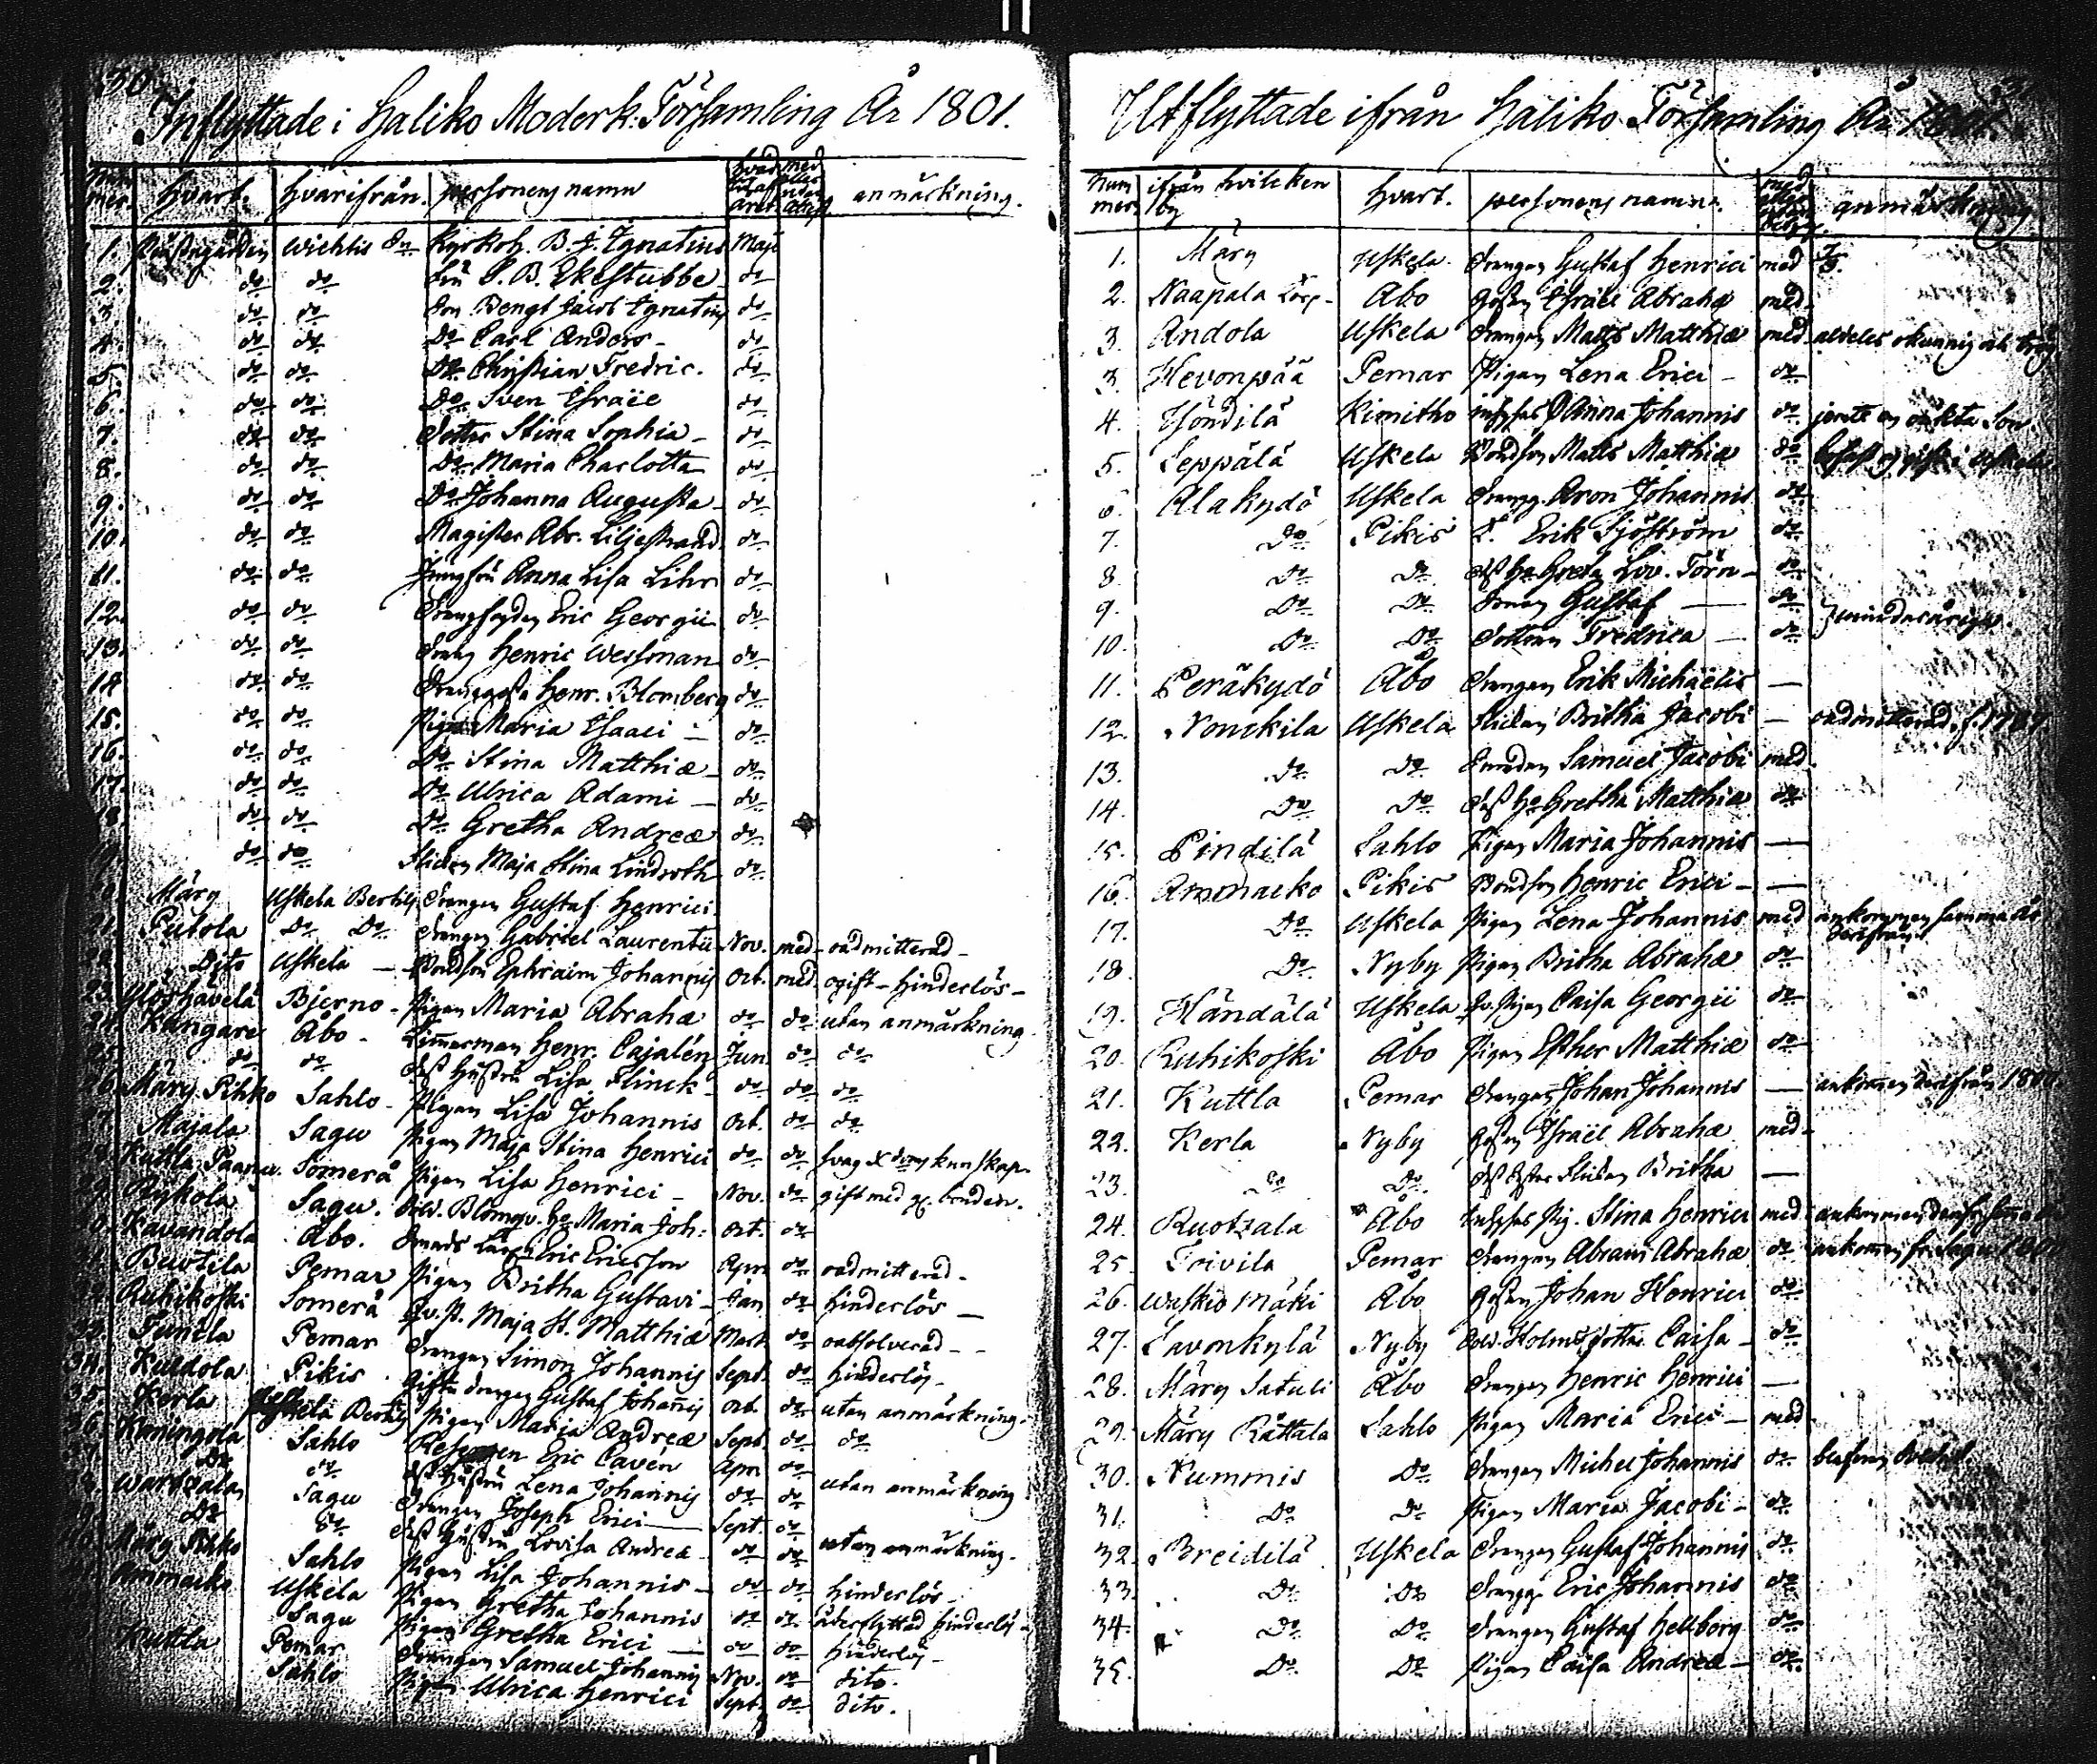 30.
Inflyttade i Haliko Moderk. Församling År 1801.
Num mer. hvart. hvarifrån. personens namn anmärkning.
1. Prästegården Wichtis Kyrkoh. B. J. Ignatius Maji
2. do do Fru P. B. Ekestubbe do
3. do do Son Bengt Jacob Ignatius do
4. do do Do Carl Anders - do
5. do do Do Christian Fredric. do
6. do do Do Sven Israël do
7. do do Dotter Stina Sophia - do
8. do do Do Maria Charlotta do
9. do do Do Johanna Augusta - do
10. do do Magister Abr. Liljestrand do
11. do do Jungfru Anna Lisa Lihr do
12. do do Eric Georgii do
13. do do Dreng Henric Wessman do
14 do do Henr. Blomberg do
15. do do Pigan Maria Isaaci - do
16. do do Do Stina Matthiæ - do
17. do do Do Ulrica Adami - do
18 do do Do Gretha Andreæ do
19. do do Flickan Maja Stina Lindroth do
Märy Uskela Bertils Drengen Gustaf Henrici.
21. Putola Do Do Drengen Gabriel Laurentii Nov. med - oadmitterad -
22. Dito Uskela - Bondson Ephraim Johannis Oct. med ogift - hinderlös -
23. Bjerno - Pigan Maria Abrahæ do do utan anmärkning
24. Kangare Åbo - Timmerman Henr. Cajalén Jun. do do
25. do do dess Hustru Lisa Flinck - do do do
26. Märy Pihko Sahlo - Pigan Lisa Johannis Oct. do do
27. Majala Sagu Pigan Maja Stina Henrici do do svag Xdoms kunskap.
28. Kuttla Somerå Pigan Lisa Henrici - Nov. do gift med
29. Rijkola Sagu. Sold. Blomqv. Ho Maria Joh: Oct. do
30. Kavandola Åbo. Eric Ericsson Apr. do oadmitterad -
31. Buotila Pemar Pigan Britha Gustavi - Jan do hinderlös -
32. Ruhikoski Somerå Qv. P. Maja St. Matthiæ Mart. do oabsolverad - -
33. Pemar Drengen Simon Johannis Sept. do hinderlös -
34. Kuedola Pikis Gifta drengen Gustaf Johannis Oct. do utan anmärkning -
35. Kerla Uskela Bertils Pigan Maria Andreæ Sept. do do
36. Kuningola Sahlo Eric Cavén Apr. do
37. Do do dess Hustru Lena Johannis do do utan anmärkning
Wartzala Sagu Drengen Joseph Erici - Sept. do
Do do dess Hustru Lovisa Andreæ do do utan anmärkning -
Märy Pihko Sahlo Pigan Lisa Johannis - do do hinderlös -
Ammaiko Uskela Pigan Gretha Johannis do do återflyttad hinderlös -
Sagu Pigan Gretha Erici - do do hinderlös -
Kuttla Pemar Drengen Samuel Johannis Nov. do dito.
Sahlo Pigan Ulrica Henrici Sept. do dito.
Utflyttade ifrån Haliko Församling År 1801.
Num mer ifrån hvilcken by hvart. personens namn. anmärkning
1. Märy Uskela. Drengen Gustaf Henrici med
2. Naapala Åbo Gossen Israël Abrahæ med -
3. Andola Uskela Drengen Matts Matthiæ med aldeles okunnig och trög
3. Hevonpää Pemar Pigan Lena Erici - do
4. Kimitho Anna Johannis do jemte en oäkta Son.
5. Leppälä Uskela Bondson Matts Matthiæ do
6. Alakydö Uskela Aron Johannis do
7. Do Pikis Erik Sjöström do
8. Do Do dess Ho Greta Lov. Törn - do
9. Do Do Sonen Gustaf - do
10. Do Do Dottren Fredrica - do minderårige
11. Peräkydö Åbo Drengen Erik Michaëlis -
12 Nonckila Uskela Flickan Britha Jacobi - oadmitterad,
13. Do Do Samuel Jacobi med
14. Do Do dess Ho Gretha Matthiæ do
15. Pindilä Sahlo Pigan Maria Johannis -
16. Ammaiko Pikis Bondson Henric Erici - -
17. Do Uskela Pigan Lena Johannis med ankommen samma år derifrån
18. Do Nyby Pigan Britha Abrahæ do
19. Händälä Uskela Qv. Pigan Caisa Georgii do
20. Ruhikoski Åbo Pigan Esther Matthiæ do
21. Kuttla Pemar Drengen Johan Johannis - ankommen derifrån 1800.
22. Kerla Nyby Gossen Israël Abrahæ med -
23. Do Do. Flickan Britha -
24. Ruotzala Åbo Stina Henrici med
25 Toivila Pemar Drengen Abram Abrahæ do ankommen fr. Sagu
26. Waskio Mäki Åbo Gossen Johan Henrici do
27. Savonkylä Nyby Sold. Holms dotter Caisa - do
28. Märy Satuli Åbo Drengen Henric Henrici -
29. Märy Rättala Sahlo Pigan Maria Erici - med
30. Nummis Do Drengen Michel Johannis do
31. Do Do Pigan Maria Jacobi - do
32. Breidilä Uskela Drengen Gustaf Johannis do
33. Do Do Eric Johannis do
34. Do Do Drengen Gustaf Hellborg do
35. Do Do Pigan Caisa Andreæ - do